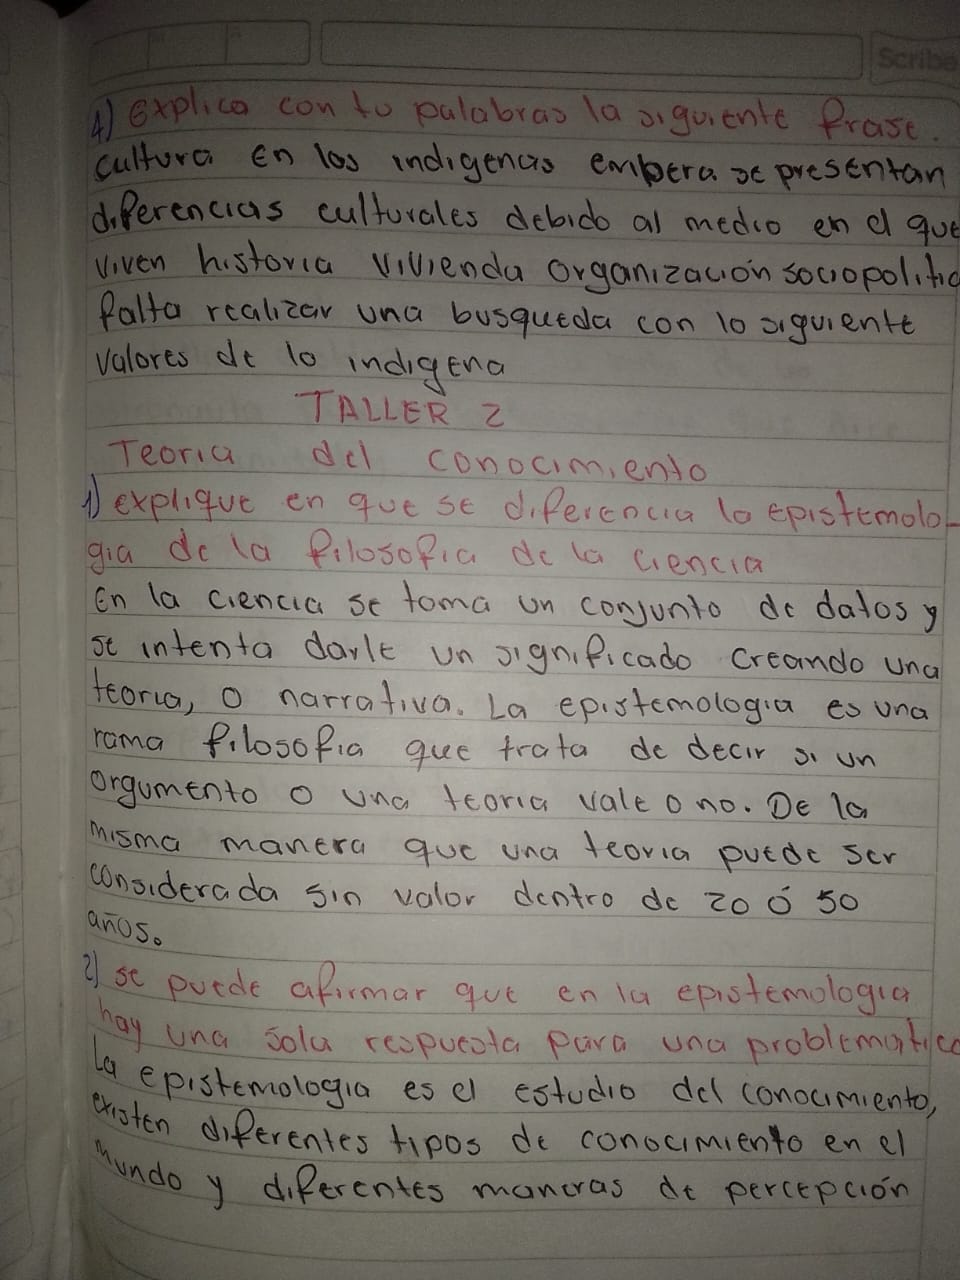 Scribe
4) Explica con tu palabras la siguiente frase.
cultura En los indigenas embera se presentan
diferencias culturales debido al medio en el que
viven historia vivienda organización sociopolitic
falta realizar una busqueda con lo siguiente
valores de lo indigena
TALLER 2
Teoria del conocimiento
1) explique en que se diferencia la epistemolo-
gia de la filosofia de la ciencia
En la ciencia se toma un conjunto de datos y
se intenta darle un significado creando una
teoria, o narrativa. La epistemologia es una
rama filosofia que trata de decir si un
orgumento o una teoria vale o no. De la
misma manera que una teoria puede ser
considerada sin valor dentro de 20 ó 50
años.
2) se puede afirmar que en la epistemologia
hay una sola respuesta para una problematica
La epistemologia es el estudio del conocimiento,
existen diferentes tipos de conocimiento en el
mundo y diferentes maneras de percepción